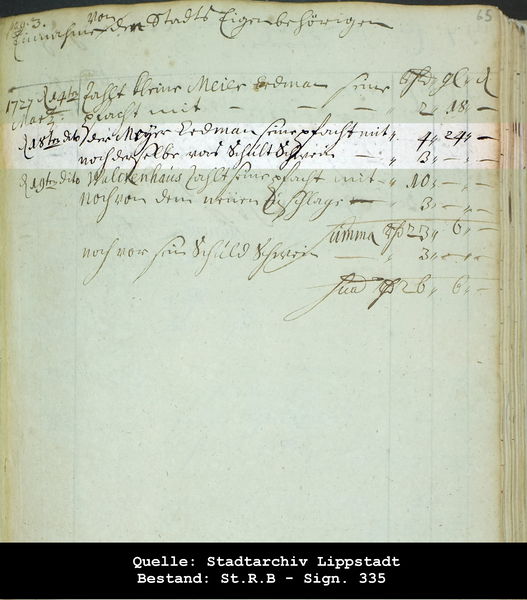 65
Einnahme von den Stadts Eigenbehörigen
1727 d 14ten Zahlt kleine Meier Ledman seine
Martz: pfacht mit — — — — 2 „ 18 „ —
d 18ten dito der Meyer Ledman seine pfacht mit „ 4 „ 24 „ —
noch derselbe vors Schült Schwein — „ 3 „ — „ —
d 19ten dito Walckenhaus Zahlt seine pfacht mit „ 10 „ — „ —
noch von dem neuen Zuschlage — „ 3 „ — „ —
Summa 23 „ 6 „ —
noch vor sein Schüld Schwein — „ 3 „ — „ —
26 „ 6 „ —
Quelle: Stadtarchiv Lippstadt
Bestand: St.R.B - Sign. 335